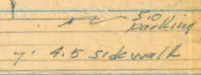 5.0
parking
4.5 sidewalk